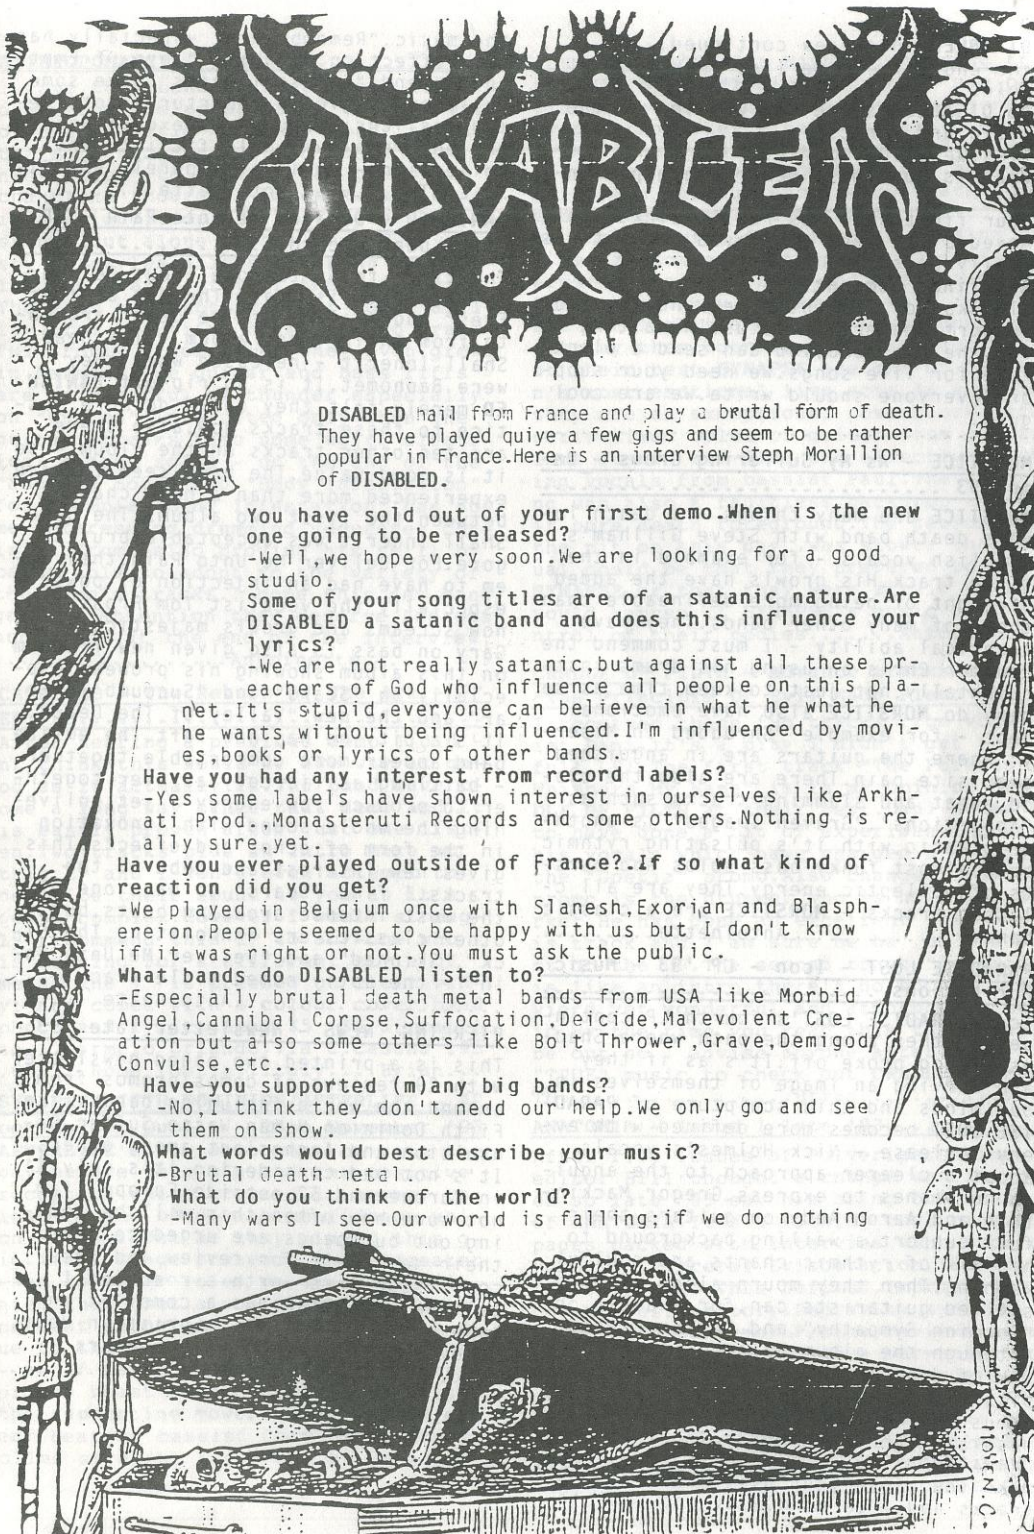 DISABLED
DISABLED hail from France and play a brutal form of death.
They have played quiye a few gigs and seem to be rather
popular in France.Here is an interview Steph Morillion
of DISABLED.
You have sold out of your first demo.When is the new
one going to be released?
-Well,we hope very soon.We are looking for a good
studio.
Some of your song titles are of a satanic nature.Are
DISABLED a satanic band and does this influence your
lyrics?
-We are not really satanic,but against all these pr-
eachers of God who influence all people on this pla-
net.It's stupid,everyone can believe in what he what he
he wants without being influenced.I'm influenced by movi-
es,books or lyrics of other bands.
Have you had any interest from record labels?
-Yes some labels have shown interest in ourselves like Arkh-
ati Prod.,Monasteruti Records and some others.Nothing is re-
ally sure,yet.
Have you ever played outside of France?If so what kind of
reaction did you get?
-We played in Belgium once with Slanesh,Exorian and Blasph-
ereion.People seemed to be happy with us but I don't know
if it was right or not.You must ask the public.
What bands do DISABLED listen to?
-Especially brutal death metal bands from USA like Morbid
Angel,Cannibal Corpse,Suffocation,Deicide,Malevolent Cre-
ation but also some others like Bolt Thrower,Grave,Demigod,
Convulse,etc....
Have you supported (m)any big bands?
-No,I think they don't nedd our help.We only go and see
them on show.
What words would best describe your music?
-Brutal death metal.
What do you think of the world?
-Many wars I see.Our world is falling;if we do nothing
MOYEN.C.